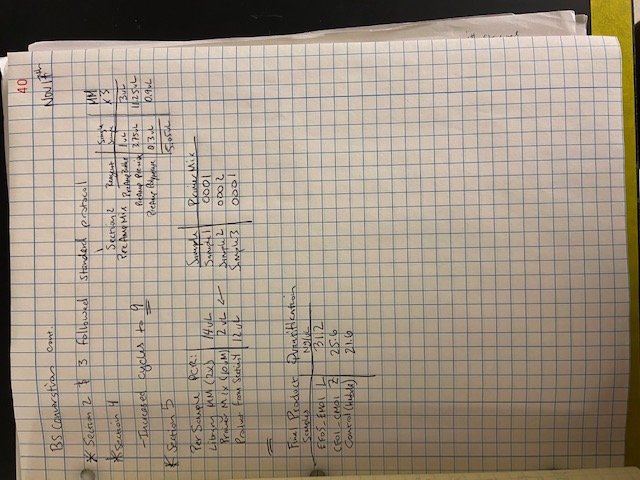 40
BS Conversion cont.
Nov 17th
* Section 2 & 3 followed standard protocol
* Section 4
- Increased cycles to 9
Section 2
PreAmp Mix
Reagent | Single Sample | MM x3
PreAmp Buffer | 1uL | 3uL
PreAmp Premix | 3.75uL | 11.25uL
PreAmp Polymerase | 0.3uL | 0.9uL
5.05uL
* Section 5
Per Sample PCR:
Library MM (2x) | 14uL
Primer Mix (10uM) | 2uL ←
Product from Section 4 | 12uL
Sample | Primer Mix
Sample 1 | 0001
Sample 2 | 0002
Sample 3 | 0001
Final Product Quantification
Samples | Ng/uL
EF05_EM01 1 | 31.2
CF01_CM01 2 | 25.6
Control | 21.6